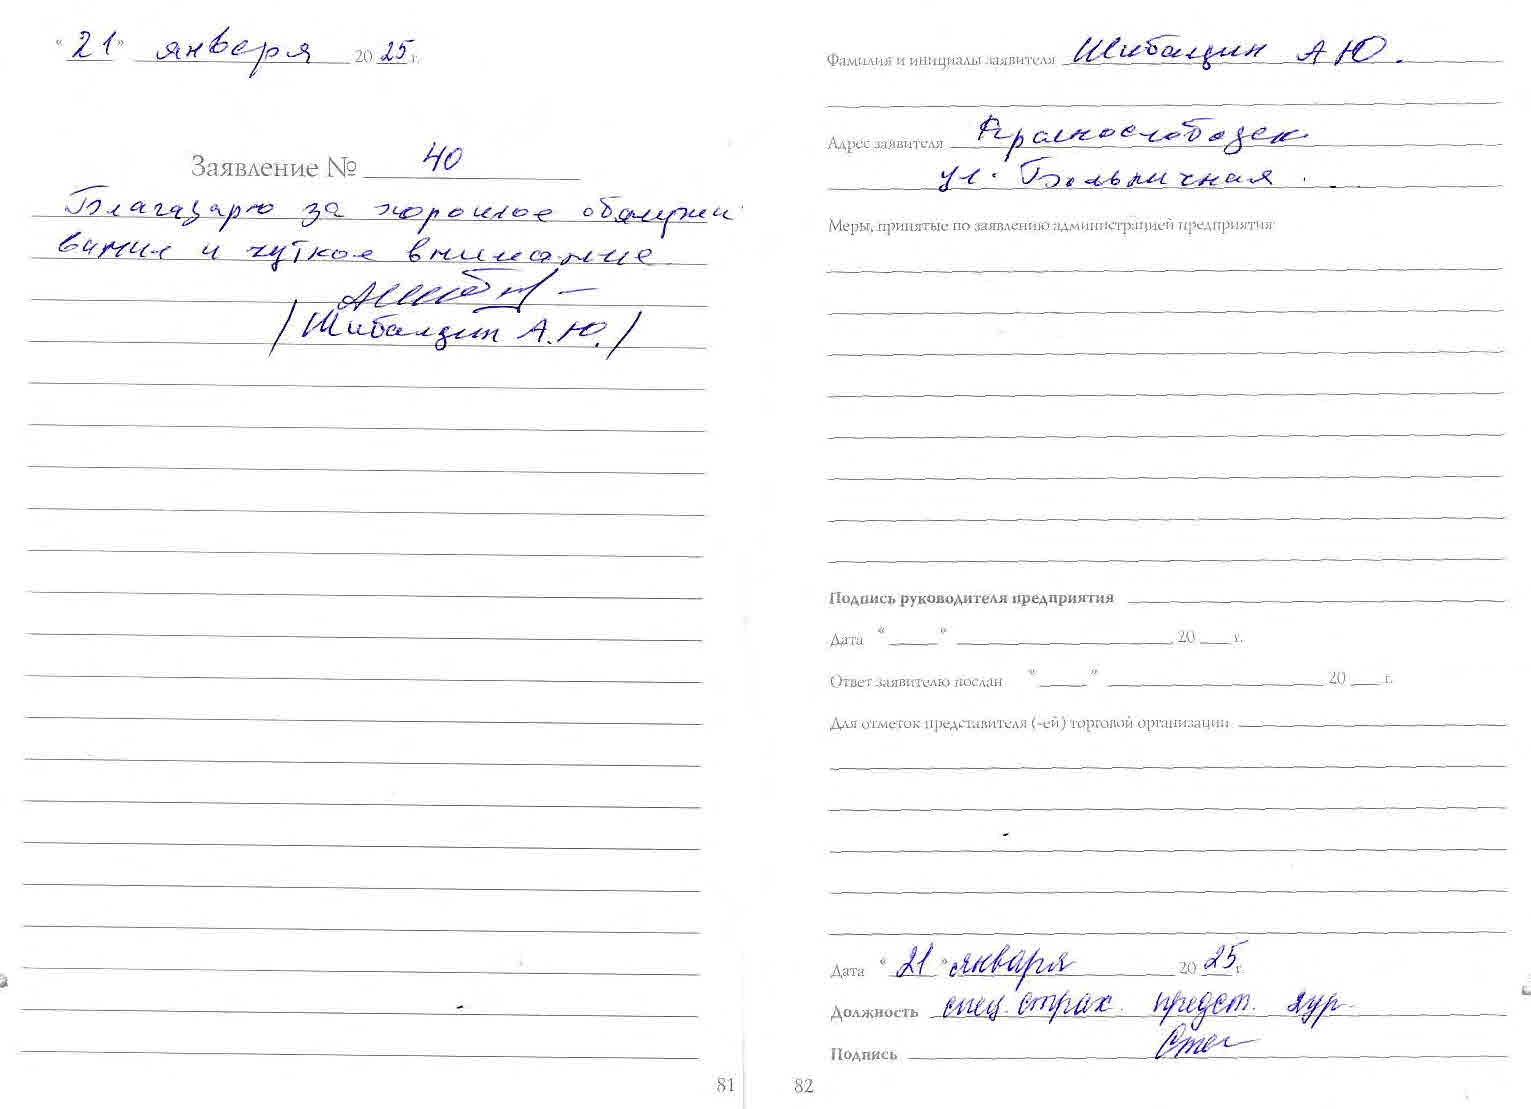 “ 21 ” января 20 25 г.
Заявление № 40
Благадарю за хорошое обслужи
вания и чуткое внимание
/ Шибалдин А.Ю. /
81
Фамилия и инициалы заявителя Шибалдин А Ю.
Адрес заявителя Краснослободск
ул. Больничная.
Меры, принятые по заявлению администрацией предприятия
Подпись руководителя предприятия
Дата “ ” 20 г.
Ответ заявителю послан “ ” 20 г.
Для отметок представителя (-ей) торговой организации
Дата “ 21 ” января 20 25 г.
Должность спец. страх. предст.
Подпись
82